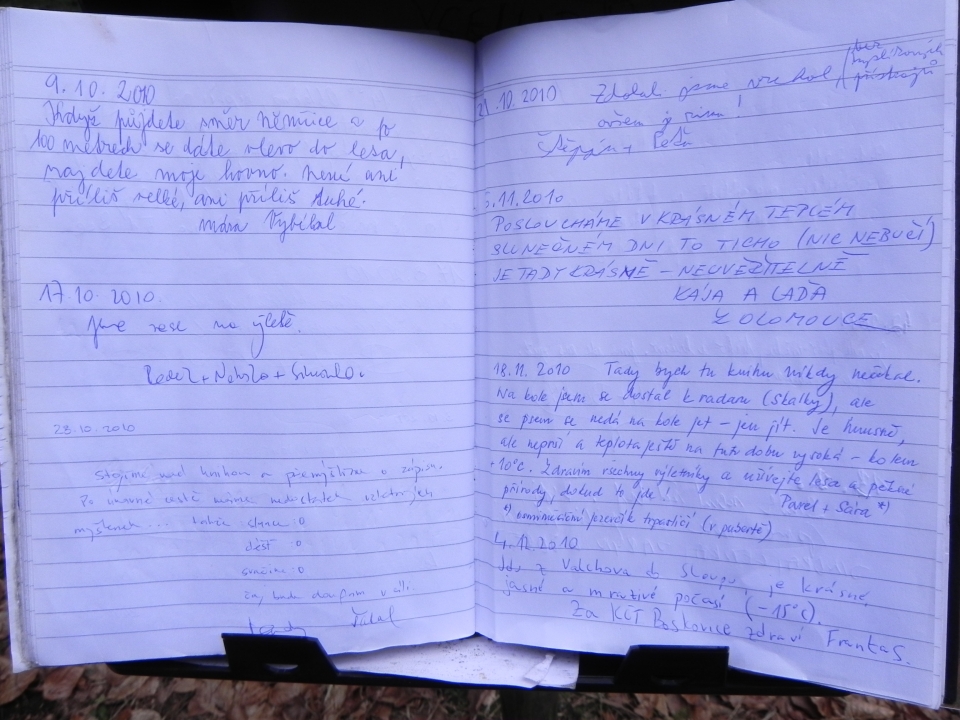 9.10. 2010
Když půjdete směr Němčice a po
100 metrech se dáte vlevo do lesa,
najdete moje hovno. Není ani
příliš velké, ani příliš tuhé.
Mára Vybíhal
17.10. 2010
Jsme zase na výletě.
Radek +
23.10. 2010
Stojíme nad knihou a přemýšlíme o zápisu.
Po únavné cestě máme nedostatek
myšlenek...
déšť :0
sranda :0
.10.2010 Zdolali jsme vrchol (bez
kyslíkových
přístrojů)
ovšem v zimě!
Štěpán + Péťa
.11.2010
POSLOUCHÁME V KRÁSNÉM TEPLÉM
SLUNEČNÉM DNI TO TICHO (NIC NEBUČÍ)
JE TADY KRÁSNĚ - NEUVĚŘITELNĚ
KÁJA A LAĎA
Z OLOMOUCE
18.11. 2010 Tady bych tu knihu nikdy nečekal.
Na kole jsem se dostal k radaru (Skalky), ale
se psem se nedá na kole jet - jen jít. Je hnusně,
ale neprší a teplota ještě na tuto dobu vysoká - kolem
+10°C. Zdravím všechny výletníky a užívejte lesa a pěkné
přírody, dokud to jde! Pavel + Sára *)
*) knírač trpasličí (v pubertě)
4.12.2010
Jdu z Valchova do Sloupu, je krásné,
jasné a mrazivé počasí (-15°C).
Za KČT Boskovice zdraví Franta S.